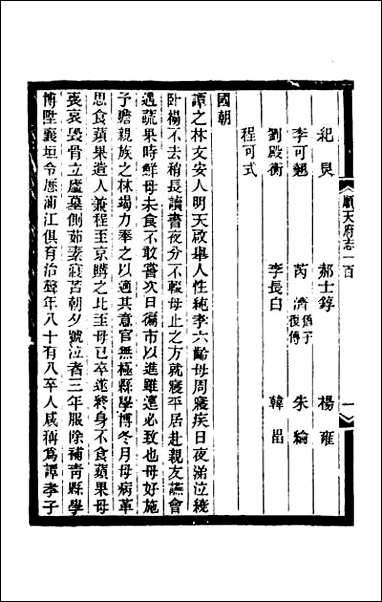 順天府志一百 一
紀炅 郝士錞 楊雍
李可魁 芮濟 係子復傳 朱綸
劉殿衡 李長白 韓
程可式
國朝
譚之林文安人明天啟舉人性純孝六齡母周寢疾日夜涕泣繞
卧榻不去稍長讀書夜分不輟母止之方就寢平居赴親友讌會
遇蔬果時鮮母未食不敢嘗次日徧市以進雖遠必致也母好施
予贍親族之林竭力奉之以適其意官無極縣學博冬月母病革
思食蘋果遣人兼程至京購之比至母已卒遂終身不食蘋果母
喪哀毀骨立廬墓側茹素寢苫朝夕號泣者三年服除補青縣學
博陞襄垣令歷浦江俱有治聲年八十有八卒人咸稱爲譚孝子